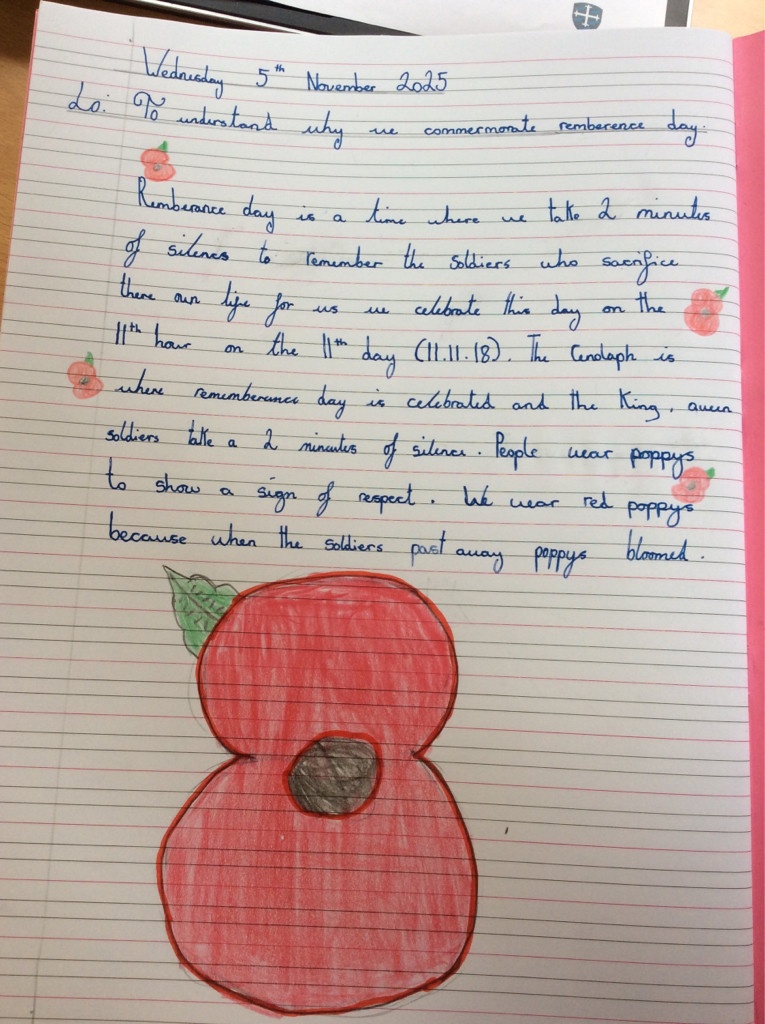 Wednesday 5th November 2025
Lo: To understand why we commermorate remberence day.
Remberance day is a time where we take 2 minutes
of silences to remember the soldiers who sacrifice
there own life for us we celebrate this day on the
11th hour on the 11th day (11.11.18). The Cenolaph is
where rememberance day is celebrated and the King, queen
soldiers take a 2 minutes of silence. People wear poppys
to show a sign of respect. We wear red poppys
because when the soldiers past away poppys bloomed.